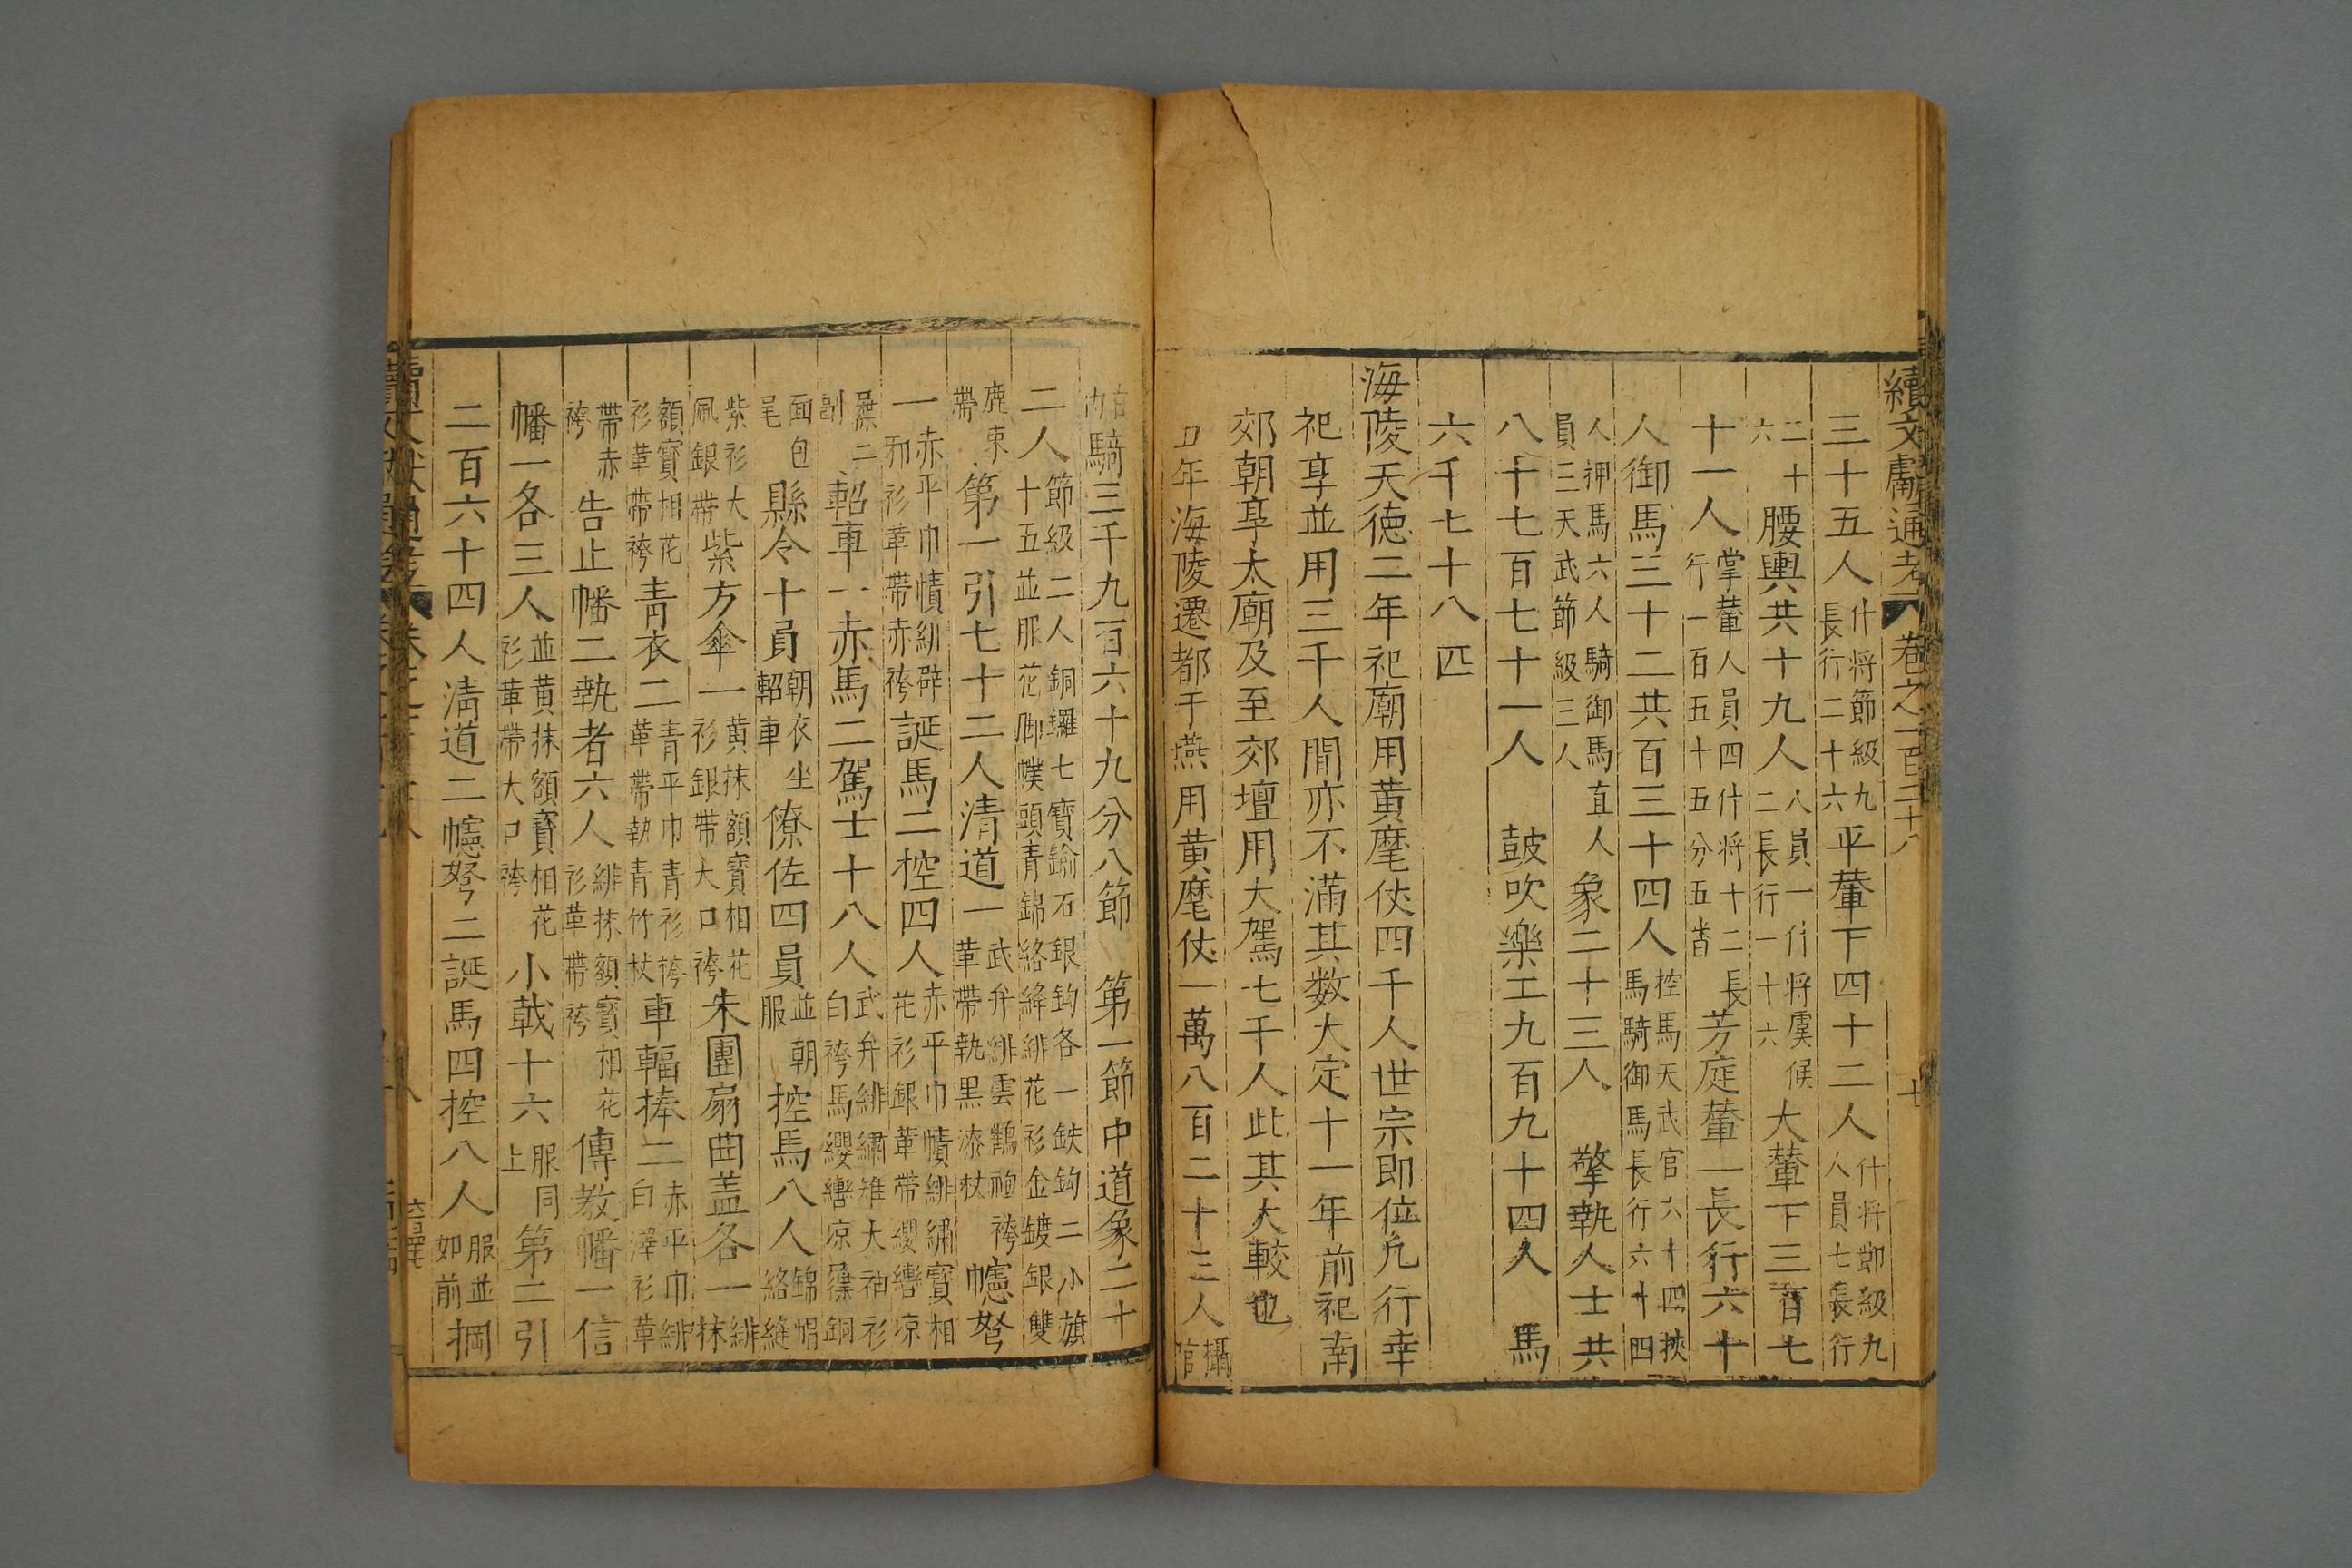 續文獻通考 卷之一百二十八 七
三十五人什將節級九長行二十六平輦下四十二人什將節級九人員七長行
二十六腰輿共十九人人員一什將虞候二長行一十六大輦下三百七
十一人掌輦人員四什將十二長行一百五十五分五番芳庭輦一長行六十
人御馬三十二共百三十四人控馬天武官六十四挾馬騎御馬長行六十四
人押馬六人騎御馬直人員三天武節級三人象二十三人擎執人士共
八千七百七十一人 鼓吹樂工九百九十四人 馬
六千七十八匹
海陵天德二年祀廟用黃麾仗四千人世宗即位凡行幸
祀享並用三千人間亦不滿其数大定十一年前祀南
郊朝享太廟及至郊壇用大駕七千人此其大較也
年海陵遷都于燕用黃麾仗一萬八百二十三人攝官
騎三千九百六十九分八節 第一節中道象二十
二人節級二人銅鑼七寶鍮石銀鈎各一鉄鈎二小旗十五並服花脚幞頭青錦絡絳緋花衫金鍍銀雙
鹿束帶第一引七十二人清道一武弁緋雲鶴袍袴革帶執黑漆杖幰弩
一赤平巾幘緋辟邪衫革帶赤袴誕馬二控四人赤平巾幘緋繡寶相花衫銀革帶纓轡凉
屜二副軺車一赤馬二駕士十八人武弁緋繡雉大袖衫白袴馬纓轡凉屜銅
面包尾縣令十員朝衣坐軺車僚佐四員並朝服控馬八人錦帽絡縫
紫衫大佩銀帶紫方傘一黃抹額寶相花衫銀帶大口袴朱團扇曲盖各一緋抹
額寶相花衫革帶袴青衣二青平巾青衫袴革帶執青竹杖車輻捧二赤平巾緋白澤衫革
帶赤袴告止幡二執者六人緋抹額寶相花衫革帶袴傳教幡一信
幡一各三人並黃抹額寶相花衫革帶大口袴小戟十六服同上第二引
二百六十四人淸道二幰弩二誕馬四控八人服並如前掆